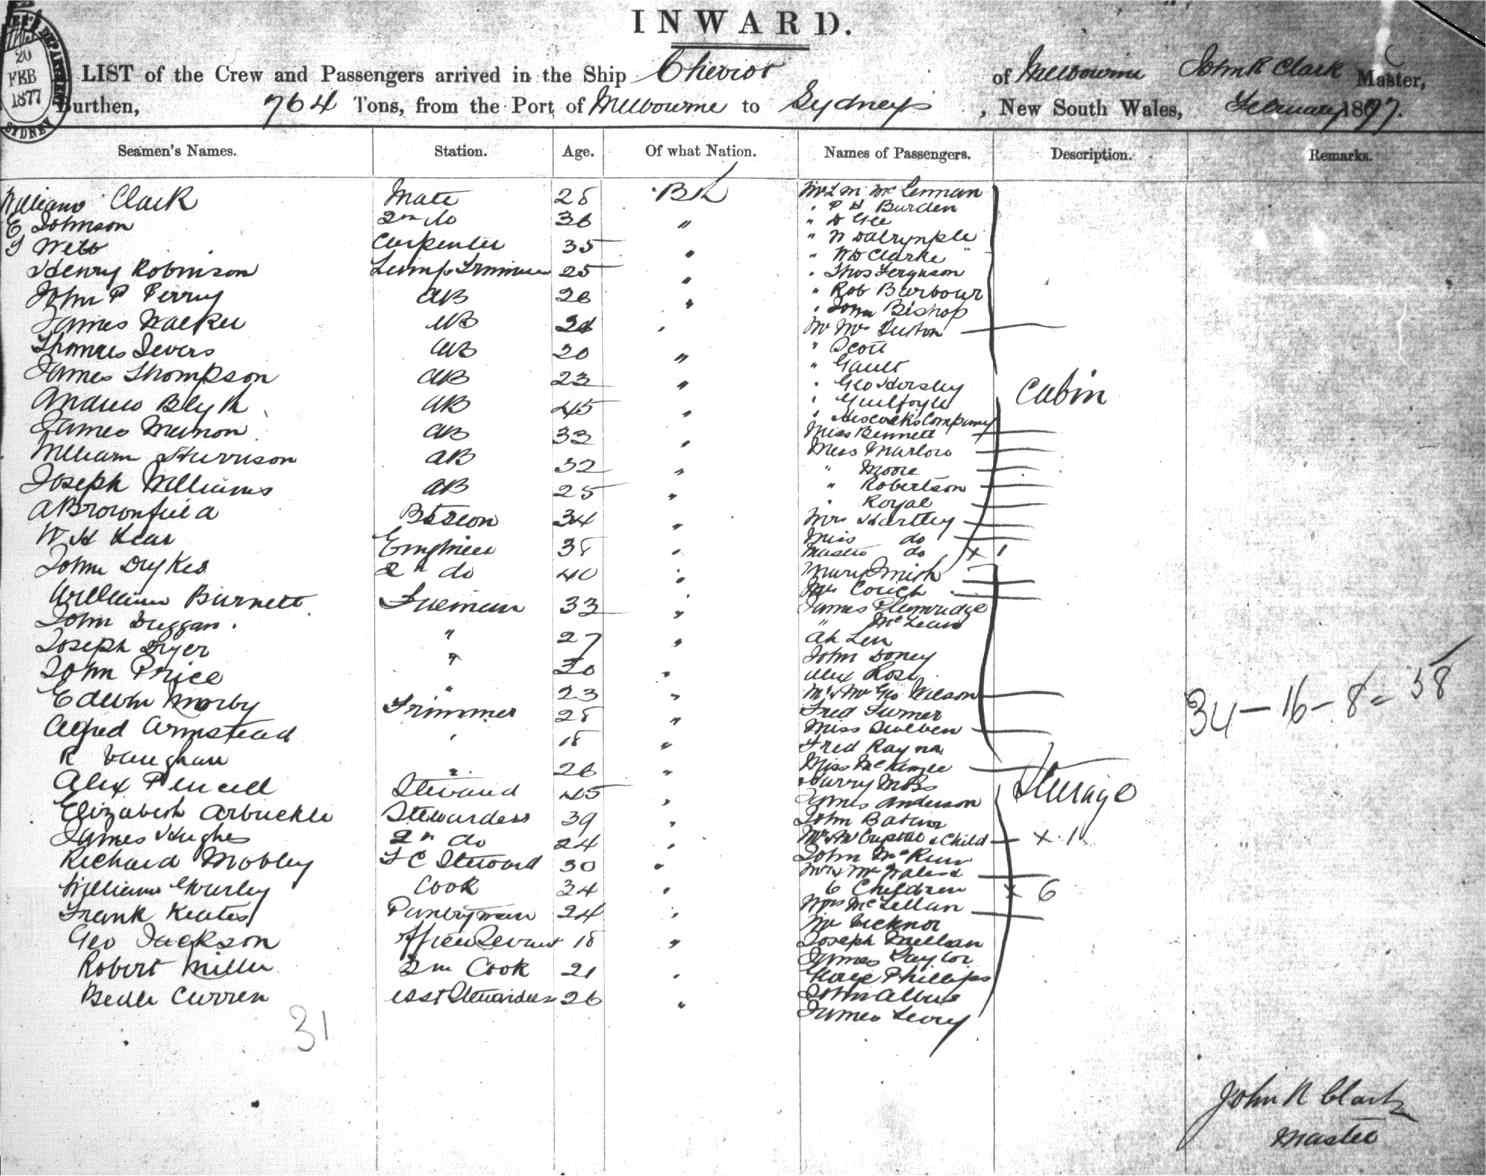 INWARD.
20
FEB
1877
SYDNEY
LIST of the Crew and Passengers arrived in the Ship Cheviot of Melbourne John R Clark Master,
Burthen, 764 Tons, from the Port of Melbourne to Sydney , New South Wales, February 1877.
Seamen's Names. Station. Age. Of what Nation. Names of Passengers. Description. Remarks.
William Clark Mate 28
E Johnson 2nd do 36 "
Webb Carpenter 35 "
Henry Robinson Lamp Trimmer 25 "
John P Perry AB 26 "
James Walker AB "
Thomas Severs AB 20 "
James Thompson AB 23 "
Andrew Blyth AB 45 "
James Munon AB 33 "
William Harrison AB 32 "
Joseph Williams AB 25 "
A Brownfield 34 "
W H Kear Engineer 38 "
John Dykes 2nd do 40 "
William Burnett Fireman 33 "
John Duggan. " 27 "
Joseph Dryer " 30 "
John Price " 23 "
Edwin Morby Trimmer 28 "
Alfred Armstead " 18 "
R Vaughan " 26 "
Alex Pencell Steward 45 "
Elizabeth Arbuckle Stewardess 39 "
James Hughes 2nd do 24 "
Richard Mobley F C Steward 30 "
William Gourley Cook 34 "
Frank Keates Pantryman 24 "
Geo Jackson Servant 18 "
Robert Miller 2nd Cook 21 "
Curren Asst Stewardess 26 "
31
McLennan
" P H Burden
" D Gee
" N Dalrymple
" Clarke
" Thos Ferguson
" Rob Barbour
" John Bishop
Mr Mrs
" Scott
" Gault
" Geo Horsley
" Guilfoyle
" Company
Miss Bennett
Miss Marlow
" Moore
" Robertson
" Royal
Mrs Hartley
Miss do
Master do x 1
Cabin
Mary Smith
Mrs Couch
James
" McLean
Ah Len
John Doney
Alex Rose
Mr & Mrs Geo Nelson
Fred Turner
Miss
Fred Rayna
Miss McKenzie
Harry
James Anderson
John
Mr Mrs Crystal & Child x 1
John
Mr Mrs
6 Children x 6
McLellan
Mr Bicknor
Joseph
James Taylor
George Phillips
John
James Levey
Steerage
34 - 16 - 8 = 58
John R Clark
Master